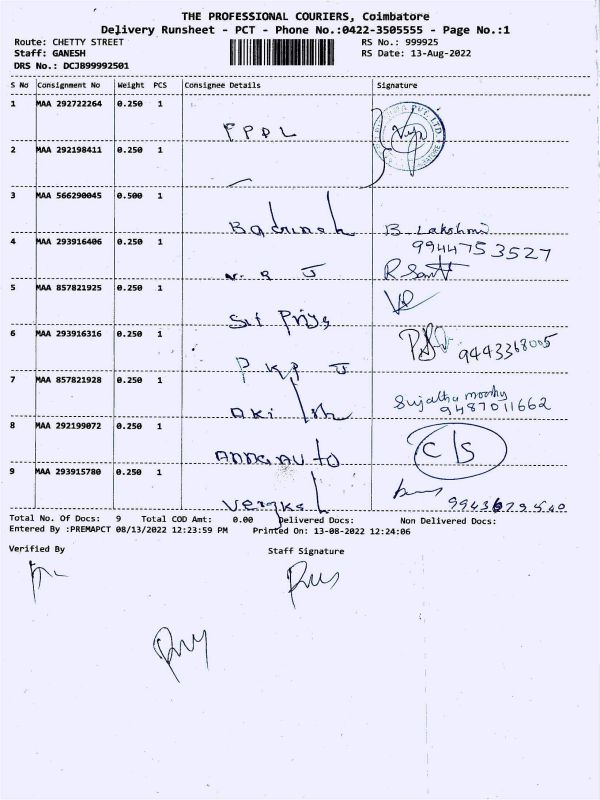 THE PROFESSIONAL COURIERS, Coimbatore
Delivery Runsheet - PCT - Phone No.:0422-3505555 - Page No.:1
Route: CHETTY STREET RS No.: 999925
Staff: GANESH RS Date: 13-Aug-2022
DRS No.: DCJB99992501
S No Consignment No Weight PCS Consignee Details Signature
1 MAA 292722264 0.250 1
PPDL
2 MAA 292198411 0.250 1
3 MAA 566290045 0.500 1
B. Lakshmi
4 MAA 293916406 0.250 1 9944753527
5 MAA 857821925 0.250 1
Sri Priya
6 MAA 293916316 0.250 1
9443368005
PKP J
7 MAA 857821928 0.250 1 Sujatha moorthy
9487011662
8 MAA 292199072 0.250 1
C/S
9 MAA 293915780 0.250 1
Total No. Of Docs: 9 Total COD Amt: 0.00 Delivered Docs: Non Delivered Docs:
Entered By :PREMAPCT 08/13/2022 12:23:59 PM Printed On: 13-08-2022 12:24:06
Verified By Staff Signature